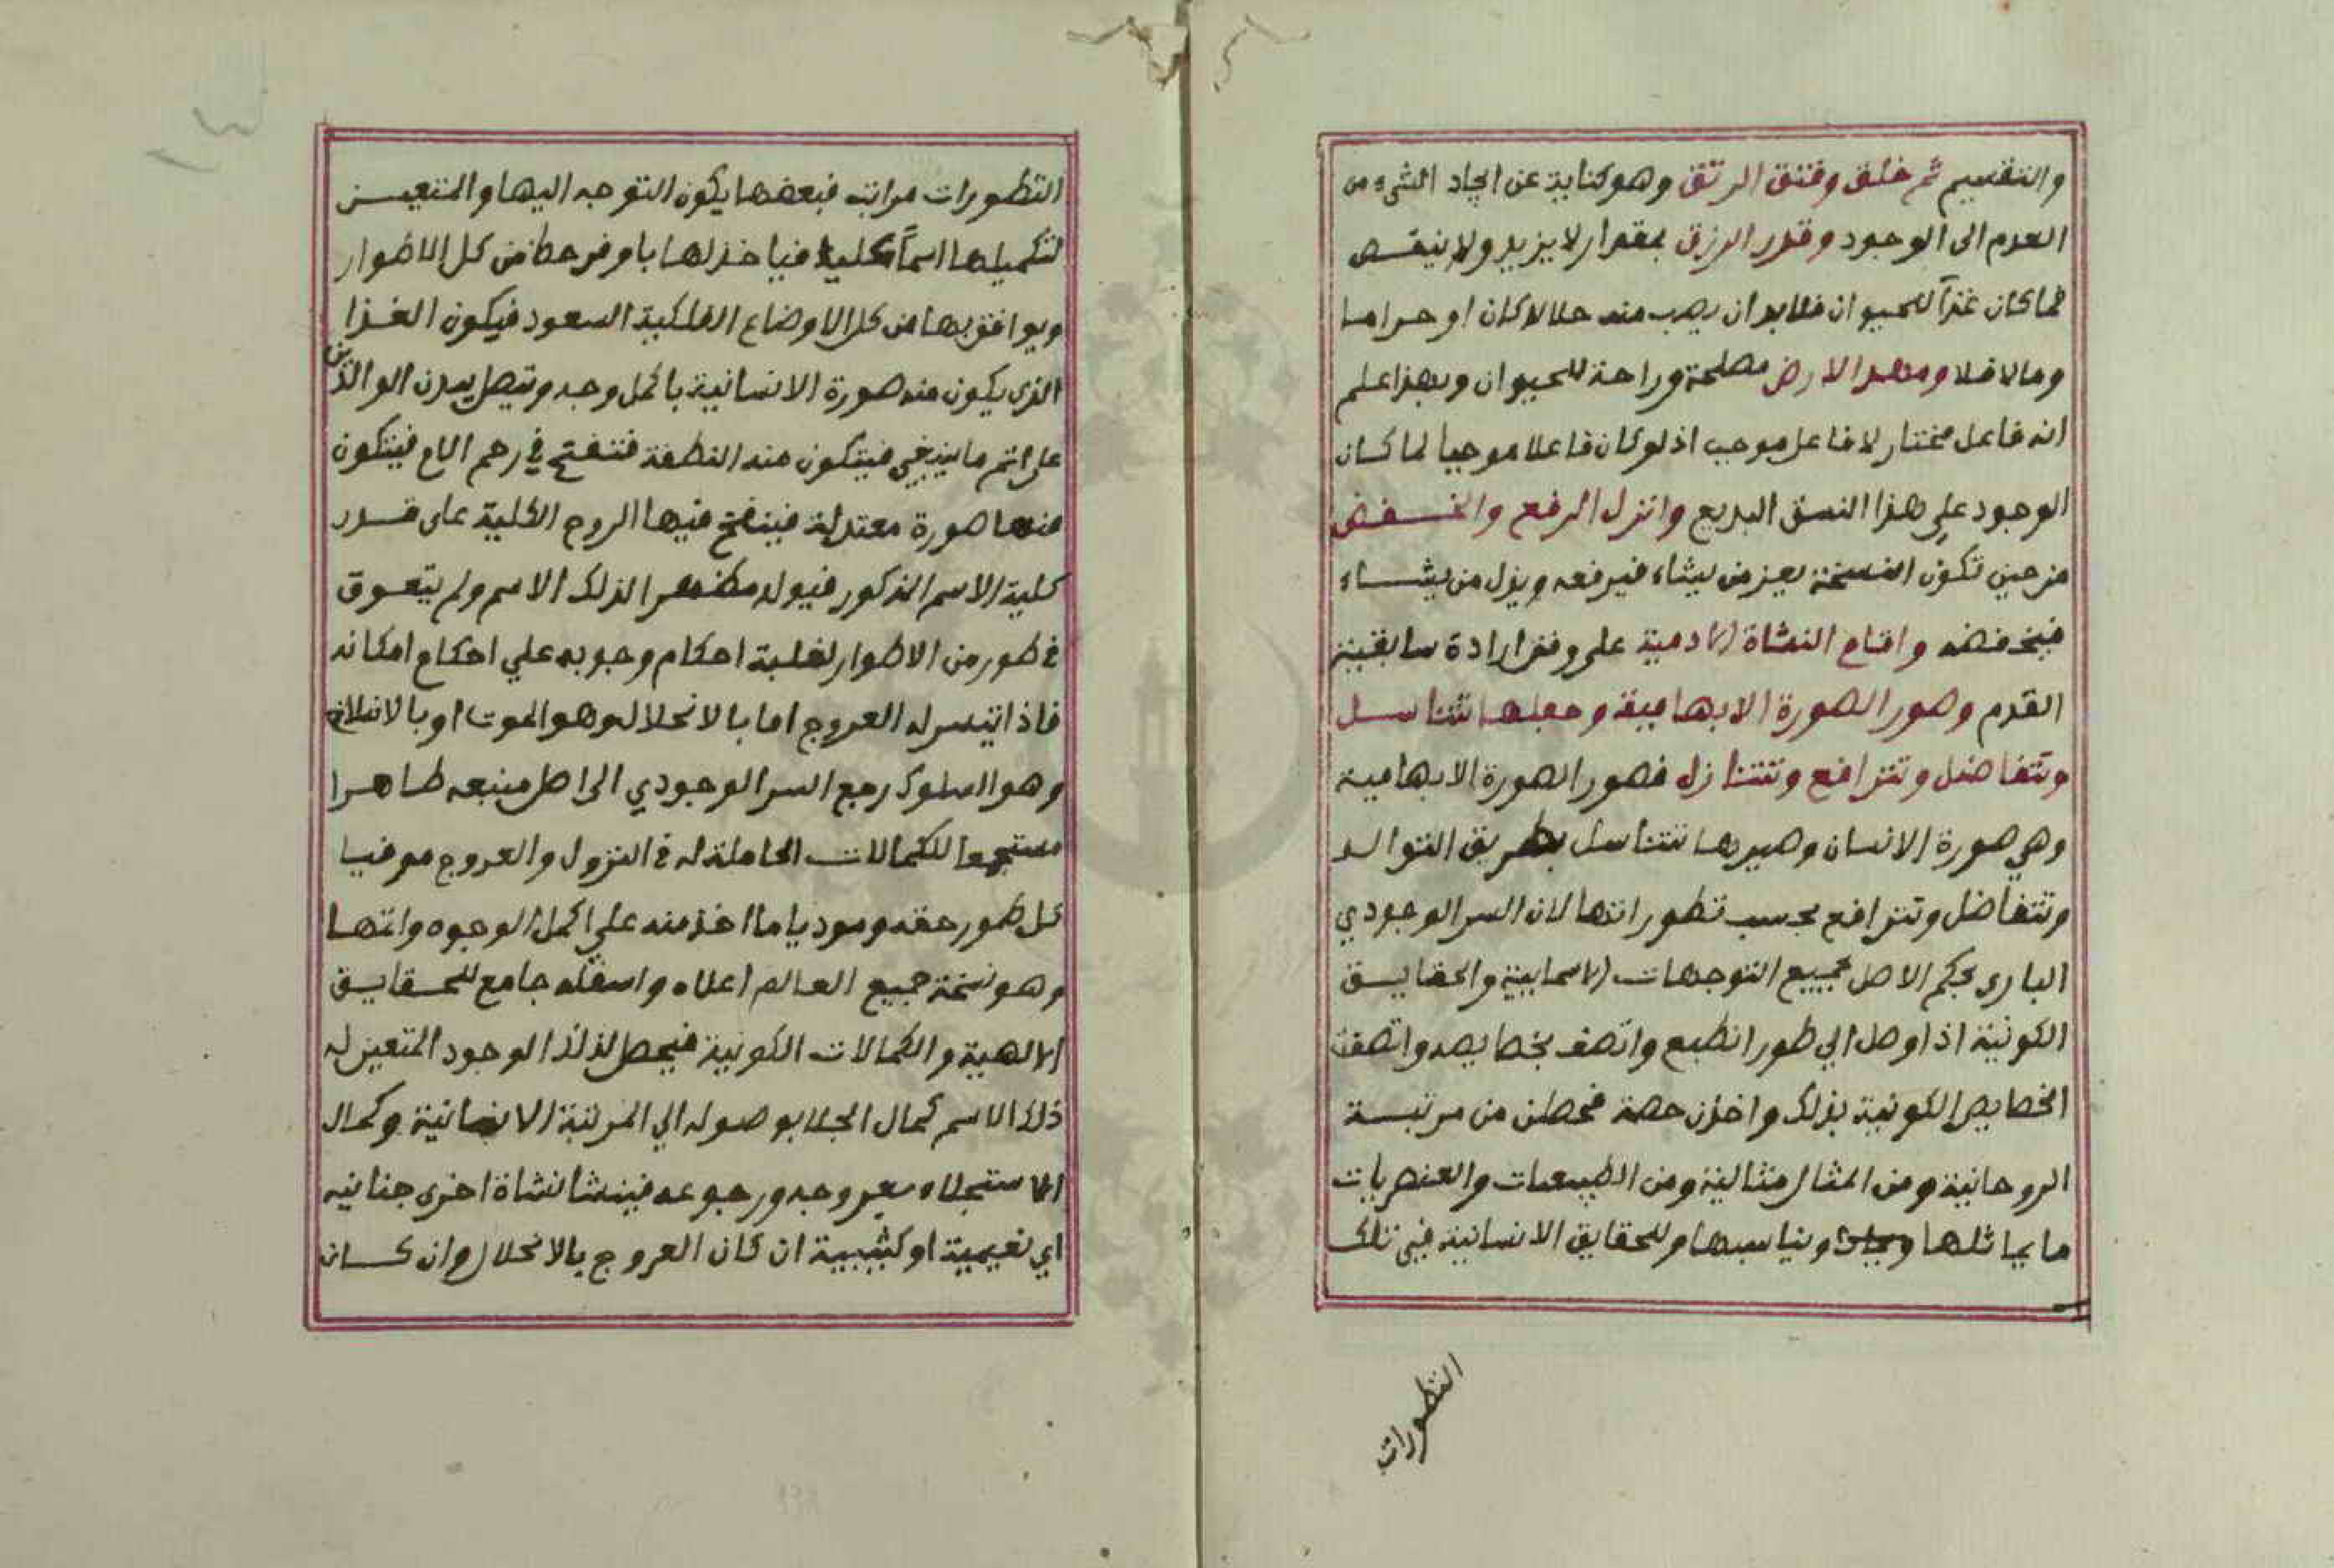 والتقسيم ثم خلق وفتق الرتق وهو كناية عن ايجاد الشيء من
العدم الى الوجود وقدر الرزق بمقدار لا يزيد ولا ينقص
فما كان غذآ للحيوان فلا بد ان يصب منه حلالا كان او حراما
وما لا فلا ومهد الارض مصلحة وراحة للحيوان وبهذا علم
انه فاعل مختار لا فاعل موجب اذ لو كان فاعلا موجبا لما كان
الوجود على هذا النسق البديع وانزل الرفع والخفض
من حين تكون النسخة يعز من يشاء فيرفعه ويذل من يشاء
فيخفضه واقام النشاة الادمية على وفق ارادة سابقية
القدم وصور الصورة الابهامية وجعلها تتناسل
وتتفاضل وتترافع وتتنازل فصور الصورة الابهامية
وهي صورة الانسان وصيرها تتناسل بطريق التوالد
وتتفاضل وتترافع بحسب تطوراتها لان السر الوجودي
الباري بحكم الاصل بجميع التوجهات الاسمايية والحقايق
الكونية اذا وصل الي طور انطبع واتصف بخصايصه واتصفت
الخصايص الكونية بذلك واخذن حصة فحصلن من مرتبة
الروحانية ومن المثال مثالية ومن الطبيعيات والعنصريات
ما يماثلها ويناسبها وللحقايق الانسانية في تلك
التطورات
التطورات مراتب فبعضها يكون التوجه اليها والمتعين
لتكميلها اسماً كليا فياخذ لها باوفر حظ من كل الاطوار
ويوافق بها من كل الاوضاع الفلكية السعود فيكون الغذا
الذي يكون منه صورة الانسانية باكمل وجه ويتصل ببدن الوالدين
على اتم ما ينبغي فيتكون منه النطفة فتنفتح في رحم الام فيتكون
منها صورة معتدلة فينفخ فيها الروح الكلية على قدر
كلية الاسم المذكور فيولد مظهرا لذلك الاسم ولم يتعوق
في طور من الاطوار لغلبة احكام وجوبه علي احكام امكانه
فاذا تيسر له العروج اما بالانحلال وهو الموت او بالانسلاخ
وهو السلوك رجع السر الوجودي الى اصل منبعه طاهرا
مستجمعا للكمالات الحاملة له في النزول والعروج موفيا
كل طور حقه وموديا ما اخذ منه علي اكمل الوجوه واتمها
وهو نسخة جميع العالم اعلاه واسفله جامع للحقايق
الالهية والكمالات الكونية فيحصل لذلك الوجود المتعين له
ذلك الاسم كمال الجلا بوصوله الي المرتبة الانسانية وكمال
الاستجلاء بعروجه ورجوعه فينشا نشاة اخرى جنانيه
اي نعيمية او كثيبية ان كان العروج بالانحلال وان كان